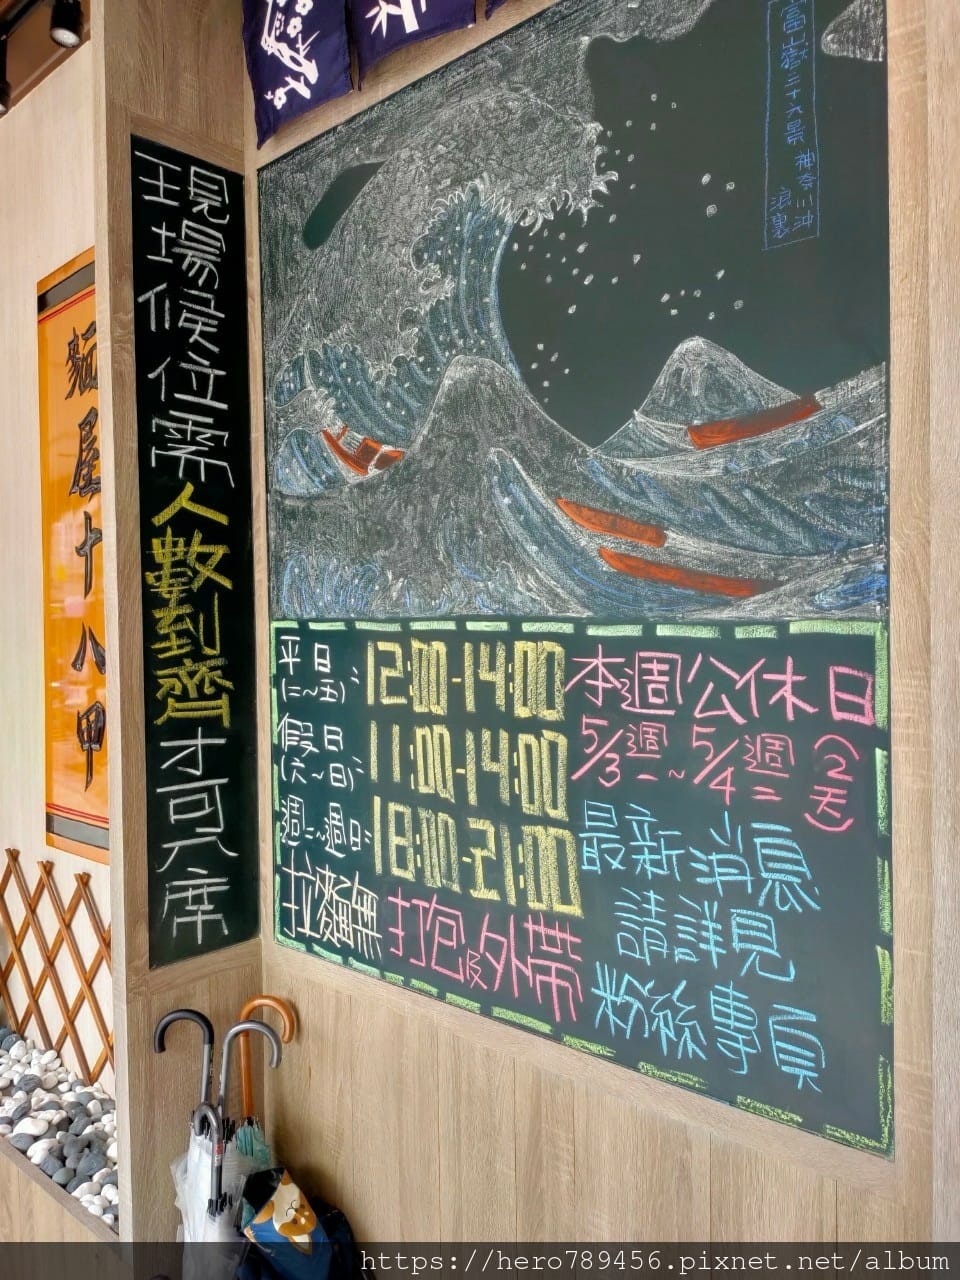 富嶽三十六景 神奈川沖
浪裏
現場候位需人數到齊才可入席
麵屋十八甲
平日:
(二~五)
12:00-14:00
假日
(六~日)
11:00-14:00
週二~週日:
18:00-21:00
拉麵無打包及外帶
本週公休日
5/3週一~5/4週二
(2天)
最新消息
請詳見
粉絲專頁
https://hero789456.pixnet.net/album